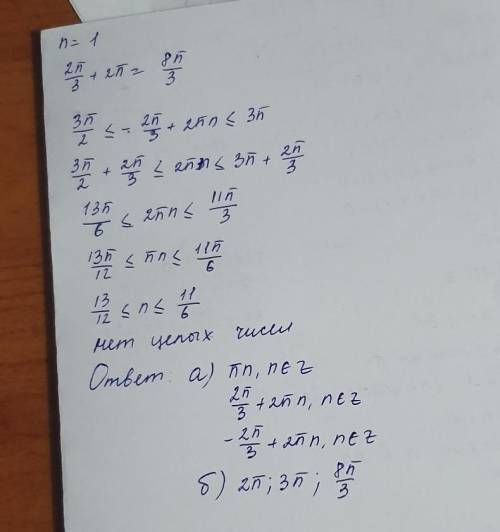 n = 1
2π/3 + 2π = 8π/3
3π/2 ≤ - 2π/3 + 2πn ≤ 3π
3π/2 + 2π/3 ≤ 2πn ≤ 3π + 2π/3
13π/6 ≤ 2πn ≤ 11π/3
13π/12 ≤ πn ≤ 11π/6
13/12 ≤ n ≤ 11/6
нет целых чисел
Ответ: а) πn, n∈Z
2π/3 + 2πn, n∈Z
-2π/3 + 2πn, n∈Z
б) 2π; 3π; 8π/3